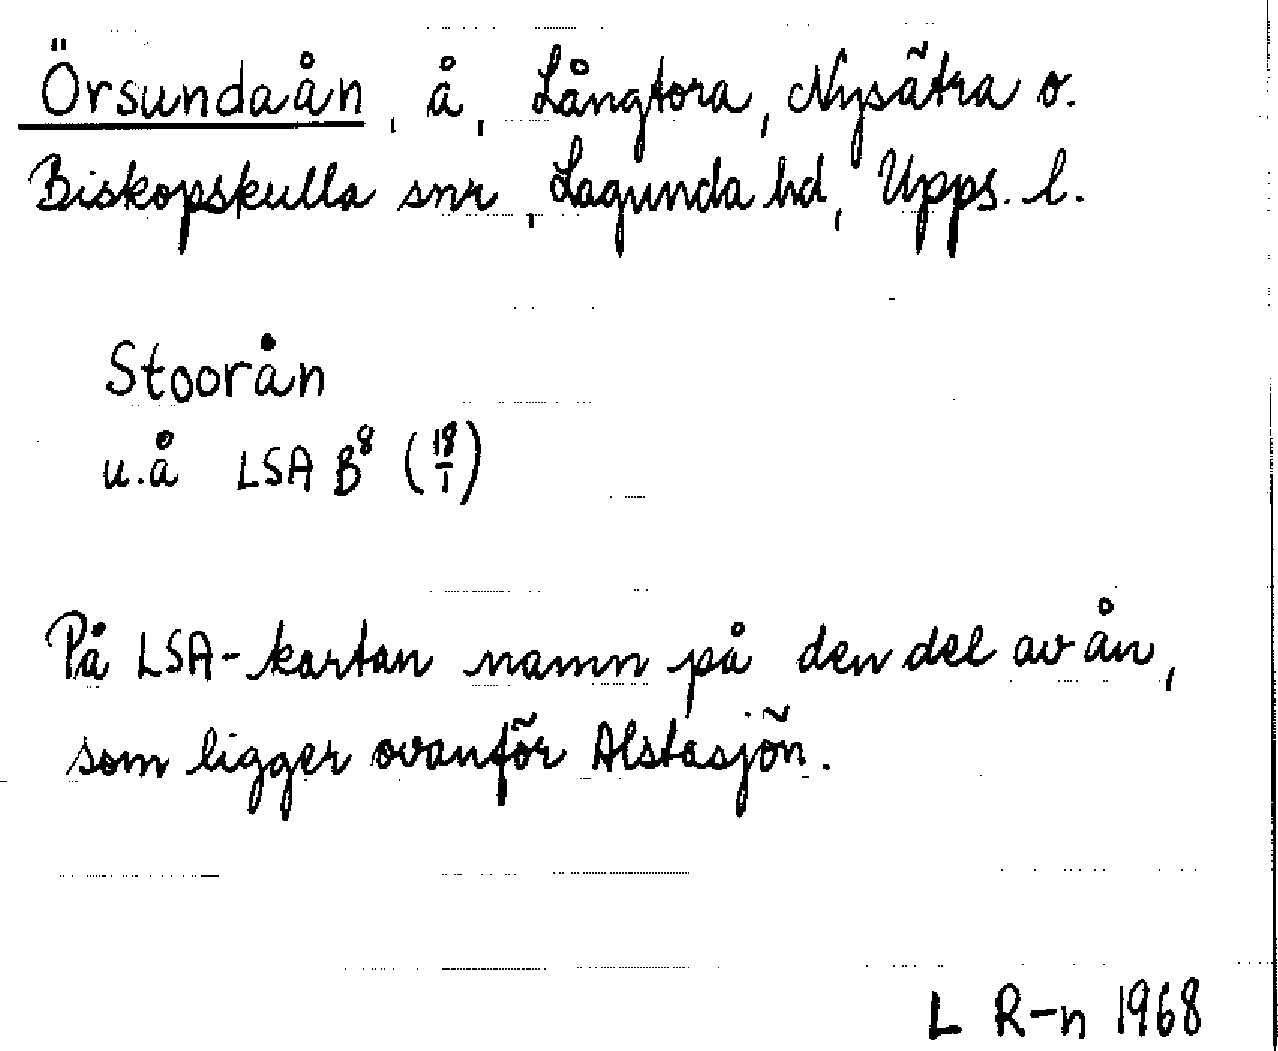 Örsundaån, å, Långtora, Nysätra o.
Biskopskulla snr, Lagunda hd, Upps. l.
Stoorån
u.å LSA B⁸ (18/1)
På LSA-kartan namn på den del av ån,
som ligger ovanför Alstasjön.
L R-n 1968